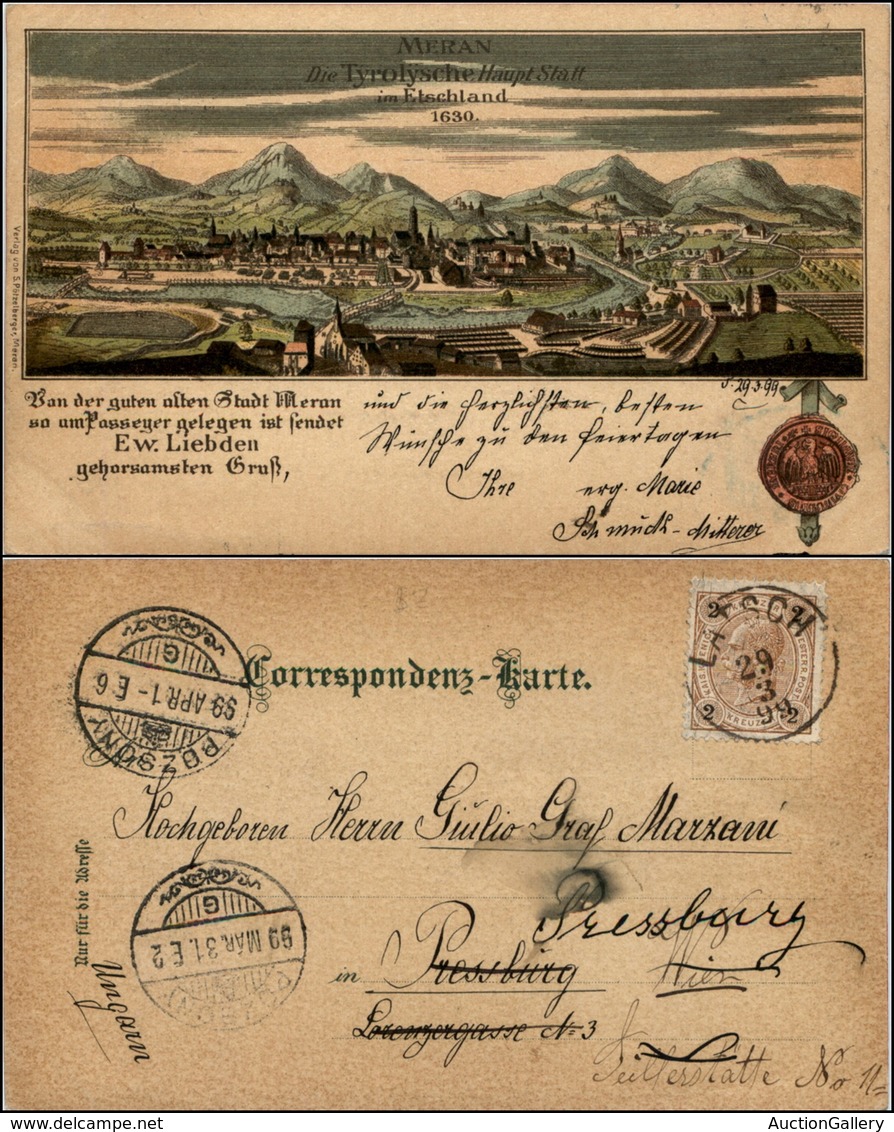 MERAN
Die Tyrolÿsche Haupt Statt
im Etschland
1630.
Verlag von S. Pötzelberger, Meran.
29.3.99
Von der guten alten Stadt Meran
so am Passeyer gelegen ist sendet
Ew. Liebden
gehorsamsten Gruß,
und die herzlichsten, besten
Wünsche zu den Feiertagen
Ihre erg. Marie
Schmuck-Mitterer
Correspondenz-Karte.
G
99 APR. 1 - E 6
POZSONY
2 2
KREUZER
2 2
LATSCH
29
3
99
Hochgeboren Herrn Giulio Graf Marzani
Nur für die Adresse
G
99 MÁR. 31. E 2
POZSONY
Pressburg
in Pressburg Wien
Lorenzergasse No 3
Ungarn
Seilerstätte No 11
AuctionGallery
AuctionGallery